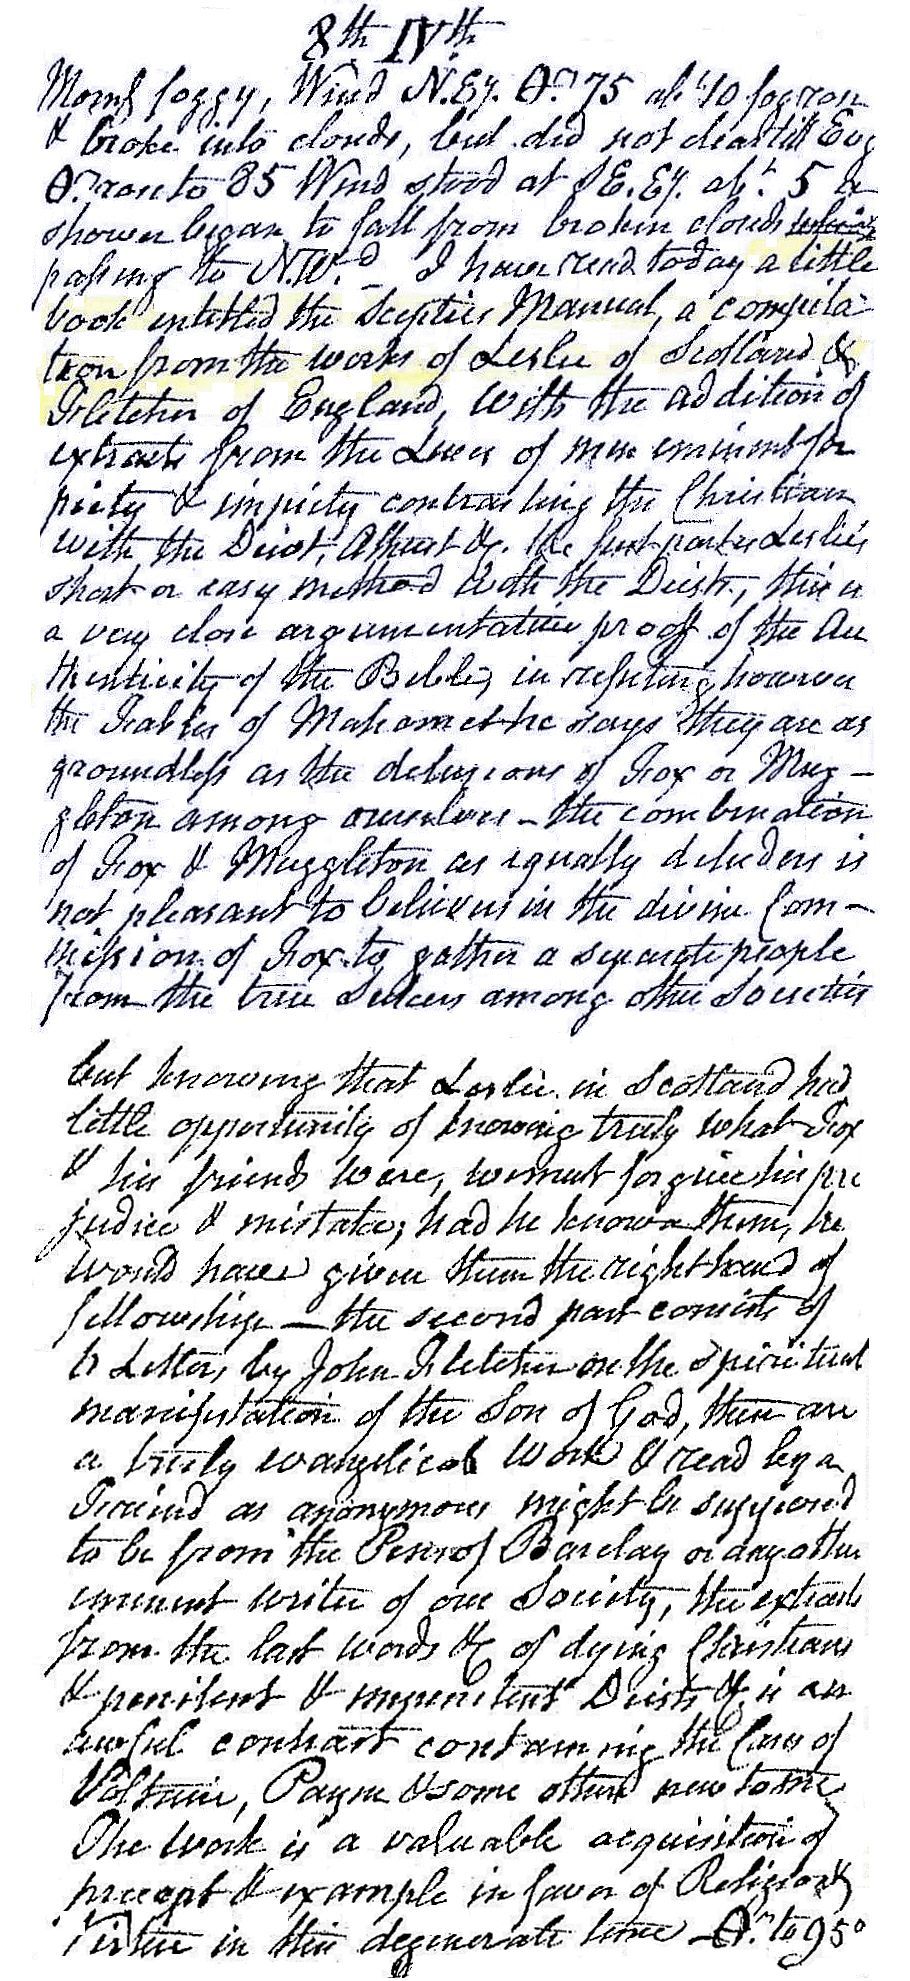 8th IVth
Morng foggy, Wind N.Ey. 75 abt 10 fog ran
& broke into clouds, but did not clear till Evg
ran to 85 Wind stood at S E. Ey. abt. 5 a
shower began to fall from broken clouds
passing to N.W.d – I have read today a little
book entitled the Sceptics Manual, a compila-
tion from the works of Leslie of Scotland &
Fletcher of England, with the addition of
extracts from the Lives of men eminent for
piety & impiety contrasting the Christian
with the Deist, Atheist &c. the first part is Leslie's
short or easy method with the Deists, this is
a very close argumentative proof of the Au
thenticity of the Bible, in refuting however
the Fables of Mahomet he says they are as
groundless as the delusions of Fox or Mug-
gleton among ourselves – the combination
of Fox & Muggleton as equally deluders is
not pleasant to believers in the divine Com-
mission of Fox to gather a separate people
from the true Seekers among other Societies
but knowing that Leslie in Scotland had
little opportunity of knowing truly what Fox
& his friends were, we must forgive his pre
judice & mistake; had he known them, he
would have given them the right hand of
fellowship – the second part consists of
6 Letters by John Fletcher on the Spiritual
manifestation of the Son of God, these are
a truly evangelical work & read by a
Friend as anonymous might be supposed
to be from the Pen of Barclay or any other
eminent writer of our Society, the extracts
from the last words &c of dying Christians
& penitent & impenitent Deists &c is an
awful contrast containing the Cases of
Voltaire, Payne & some others new to me
The work is a valuable acquisition of
precept & example in favor of Religion &
Virtue in this degenerate time – to 95°